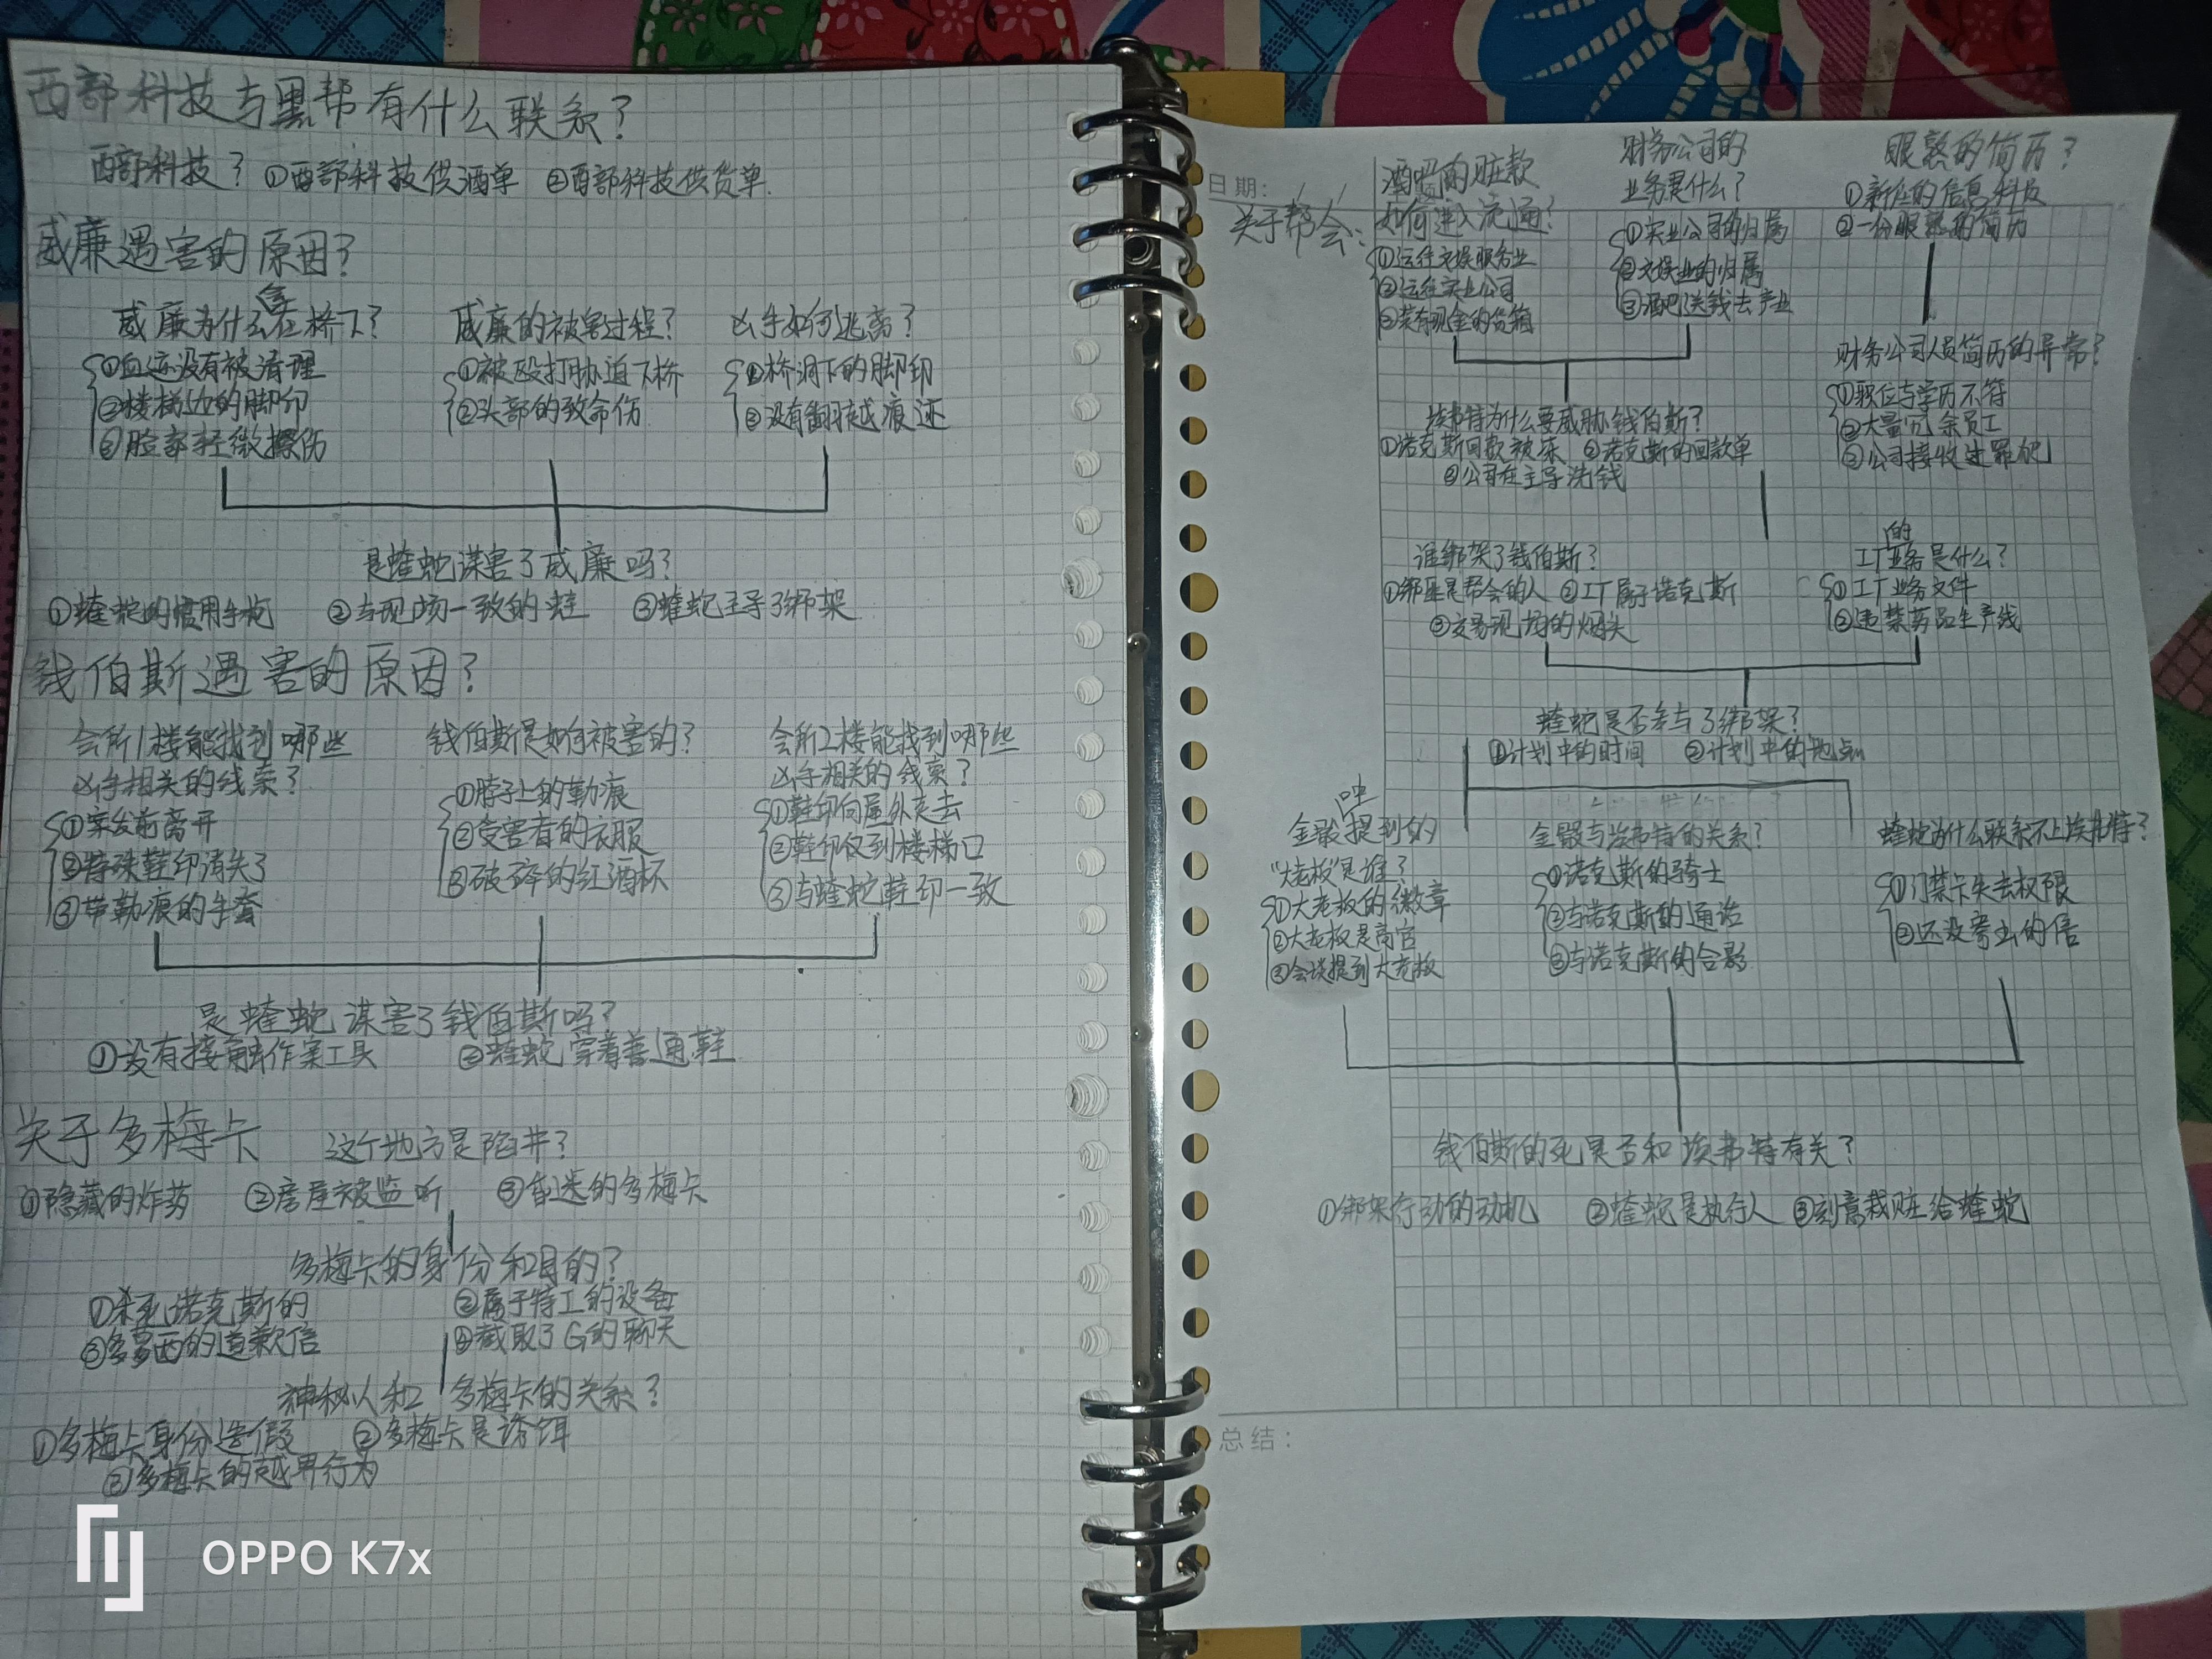 西部科技与黑帮有什么联系？
西部科技？ ①西部科技供酒单 ②西部科技供货单
威廉遇害的原因？
威廉为什么会在桥下？
①血迹没有被清理
②楼梯边的脚印
③脸部轻微擦伤
威廉的被害过程？
①被殴打胁迫下桥
②头部的致命伤
凶手如何逃离？
①桥洞下的脚印
②没有翻越痕迹
是蝰蛇谋害了威廉吗？
①蝰蛇的惯用手枪 ②与现场一致的鞋 ③蝰蛇主导了绑架
钱伯斯遇害的原因？
会所1楼能找到哪些
凶手相关的线索？
①案发前离开
②特殊鞋印消失了
③带勒痕的手套
钱伯斯是如何被害的？
①脖子上的勒痕
②受害者的衣服
③破碎的红酒杯
会所2楼能找到哪些
凶手相关的线索？
①鞋印向屋外走去
②鞋印仅到楼梯口
③与蝰蛇鞋印一致
是蝰蛇谋害了钱伯斯吗？
①没有接触作案工具 ②蝰蛇穿着普通鞋
关于多梅卡 这个地方是陷井？
①隐藏的炸药 ②房屋被监听 ③昏迷的多梅卡
多梅卡的身份和目的？
①杀死诺克斯的 ②属于特工的设备
③多萝西的道歉信 ④截取了G的聊天
神秘人和多梅卡的关系？
①多梅卡身份造假 ②多梅卡是诱饵
③多梅卡的越界行为
OPPO K7x
日期：
关于帮会：
酒吧的脏款
如何进入流通？
①运往文娱服务业
②运往实业公司
③装有现金的货箱
财务公司的
业务是什么？
①实业公司的归属
②文娱业的归属
③酒吧送钱去产业
眼熟的简历？
①新任的信息科长
②一份眼熟的简历
财务公司人员简历的异常？
①职位与学历不符
②大量冗余员工
③公司接收过罪犯
埃弗特为什么要威胁钱伯斯？
①诺克斯回款被冻 ②诺克斯的回款单
③公司在主导洗钱
谁绑架了钱伯斯？
①绑匪是帮会的人 ②工厂属于诺克斯
③交易现场的烟头
工厂的业务是什么？
①工厂业务文件
②违禁药品生产线
蝰蛇是否参与了绑架？
①计划中的时间 ②计划中的地点
金骰口中提到的
“大老板”是谁？
①大老板的徽章
②大老板是高官
③会谈提到大老板
金骰与埃弗特的关系？
①诺克斯的骑士
②与诺克斯的通话
③与诺克斯的合影
蝰蛇为什么联系不上埃弗特？
①门禁卡失去权限
②还没寄出的信
钱伯斯的死是否和埃弗特有关？
①绑架行动的动机 ②蝰蛇是执行人 ③刻意栽赃给蝰蛇
总结：